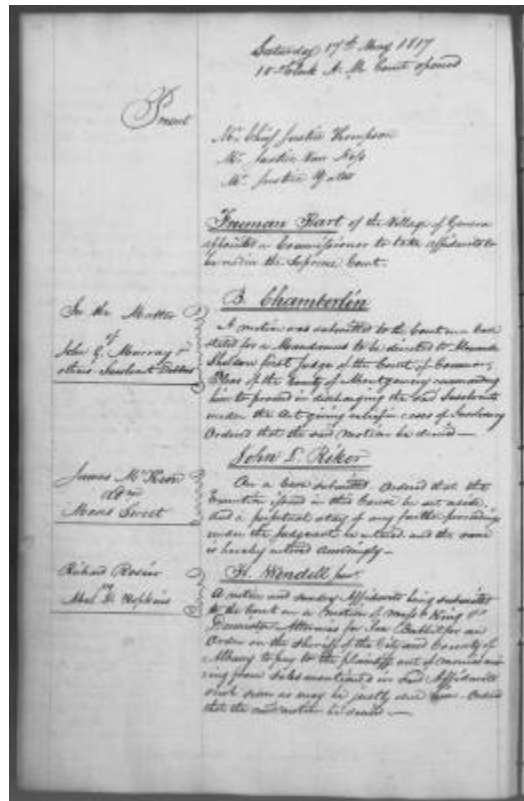 Saturday 17th May 1817
10 oClock A. M. Court opened
Present
Mr. Chief Justice Thompson
Mr. Justice Van Ness
Mr. Justice Yates
Freeman Hart of the Village of Geneva
appointed a Commissioner to take affidavits to
be read in the Supreme Court.
In the Matter
of
John G. Murray &
others Insolvent Debtors
B. Chamberlin
A motion was submitted to the Court on a case
stated for a Mandamus to be directed to
first Judge of the Court of Common
Pleas of the County of Montgomery commanding
him to proceed in discharging the said Insolvents
under the Act giving relief in cases of Insolvency
Ordered that the said motion be denied —
James McKeon
Moses Sweet
John L. Riker
On a Case submitted. Ordered that the
Execution issued in this Cause be set aside,
and a perpetual stay of any further proceedings
under the Judgment be entered and the same
is hereby entered accordingly —
Richard Rosier
vs
Abel D. Hopkins
H. Wendell
A notice and sundry Affidavits being submitted
to the Court on a motion of Mess. King &
Attornies for for an
Order on the Sheriff of the City and County of
Albany to pay to the plaintiff out of monies
from Sales mentioned in said Affidavits
such sum as may be justly due Ordered
that the said motion be denied —